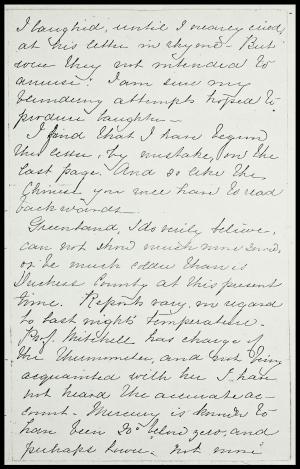 I laughed, until I nearly cried,
at his letter in rhyme - But
were they not intended to
amuse? I am sure my
blundering attempts hoped to
produce laughter -
I find that I have begun
this letter, by mistake, on the
last page. And so like the
Chinese you will have to read
backwards -
Greenland, I do verily believe,
can not show much more snow,
or be much colder than is
Duchess County at this present
time. Reports vary, in regard
to last night's temperature.
Prof. Mitchell has charge of
the Thermometer, and not being
acquainted with her I have
not heard the accurate ac-
count - Mercury is known to
have been 20° below zero, and
perhaps lower. Not more